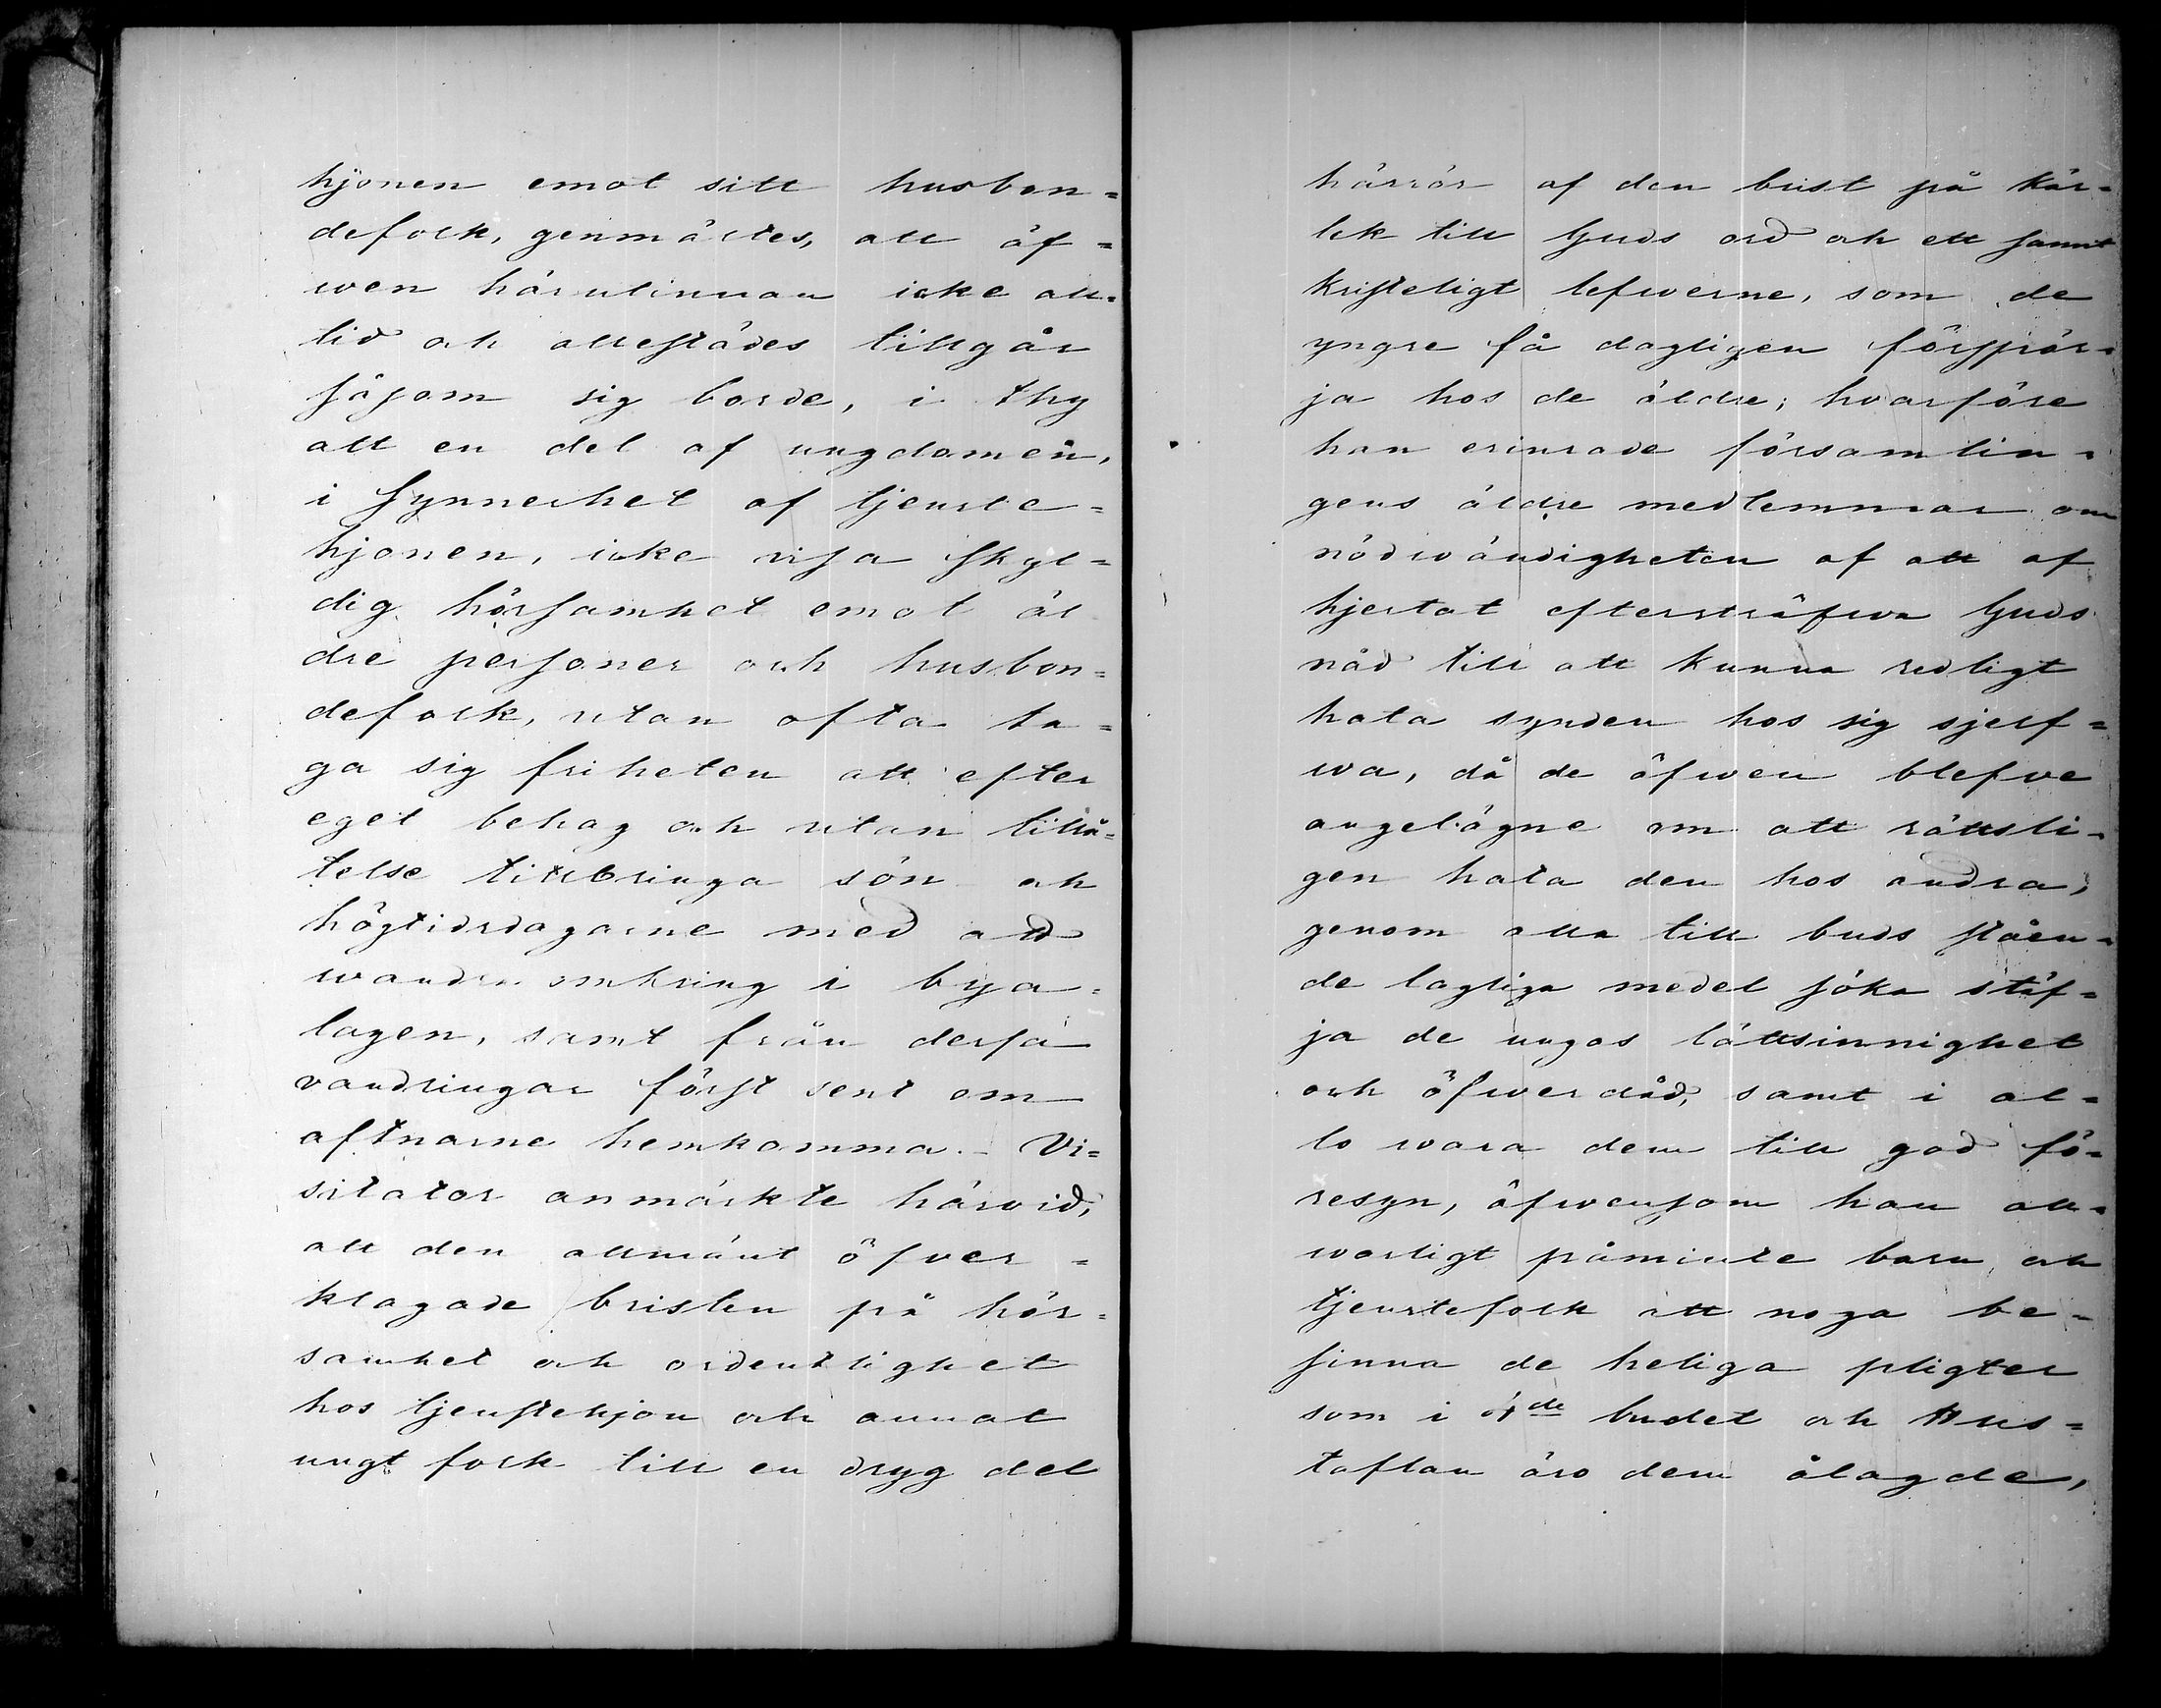 hjonen emot sitt husbon=
defolk, genmältes, att äf=
wen härutinnan icke all=
tid och allestädes tillgår
såsom sig borde, i thy
att en del af ungdomen,
i synnerhet af tjenste=
hjonen, icke visa skyl=
dig hörsamhet emot äl
dre personer och husbon=
defolk, utan ofta ta=
ga sig friheten att efter
eget behag och utan tillå=
telse tillbringa sön och
högtidsdagarne med att
wandra omkring i bya=
lagen, samt från dessa
vandringar först sent om
aftnarne hemkomma. – Vi=
sitator anmärkte härvid,
att den allmänt öfver=
klagade bristen på hör=
samhet och ordentlighet
hos tjenstehjon och annat
ungt folk till en dryg del
härrör af den brist på kär=
lek till Guds ord och ett sannt
kristeligt lefwerne, som de
yngre få dagligen förspör=
ja hos de äldre; hvarföre
han erinrade församlin=
gens äldre medlemmar om
nödwändigheten af att af
hjertat eftersträfwa Guds
nåd till att kunna redligt
hata synden hos sig sjelf=
wa, då de äfwen blefwe
angelägne om att rättsli=
gen hata den hos andra,
genom alla till buds ståen=
de lagliga medel söka stäf=
ja de ungas lättsinnighet
och öfwerdåd, samt i al=
lo wara dem till god fö=
resyn, äfwensom han all=
warligt påminte barn och
tjenstefolk att noga be=
sinna de heliga pligter
som i 4de budet och Hus=
taflan äro dem ålagde,